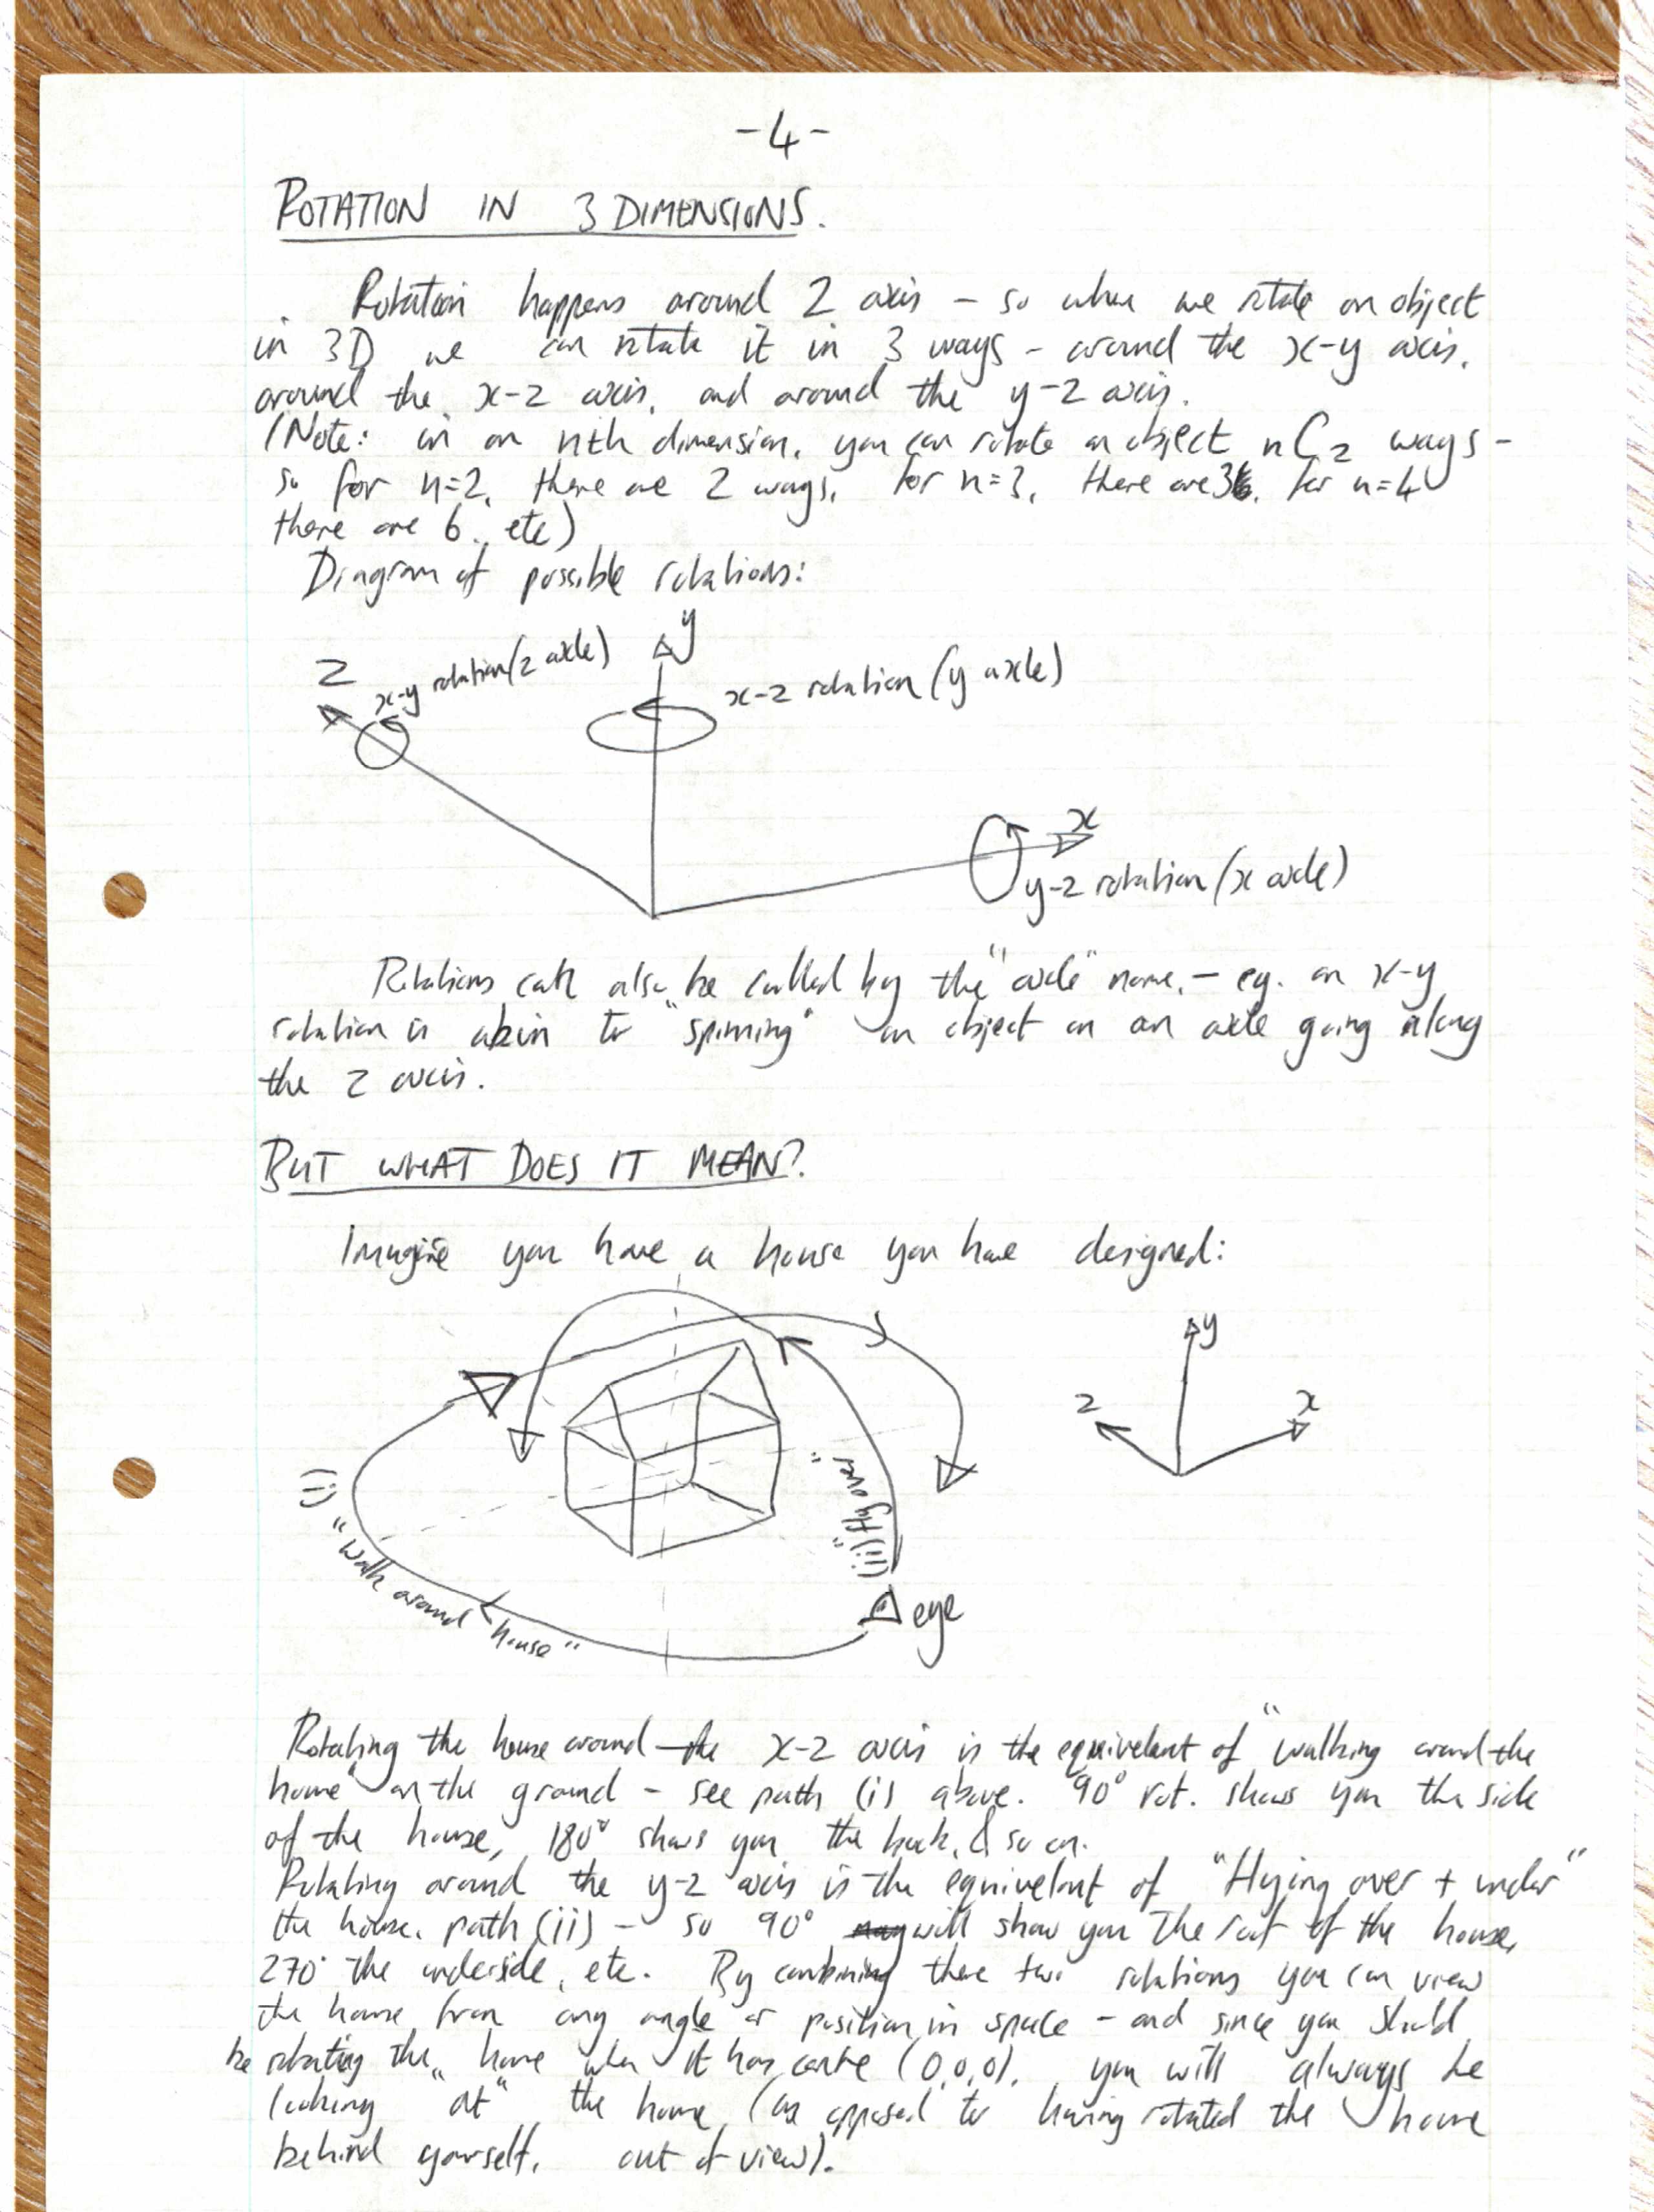 -4-
ROTATION IN 3 DIMENSIONS.
Rotation happens around 2 axis - so when we rotate an object
in 3D we can rotate it in 3 ways - around the x-y axis,
around the x-z axis, and around the y-z axis.
(Note: in an nth dimension, you can rotate an object nC2 ways -
so for n=2, there are 2 ways, for n=3, there are 3, for n=4
there are 6, etc)
Diagram of possible rotations:
y
z
x-y rotation (z axle)
x-z rotation (y axle)
x
y-z rotation (x axle)
Rotations can also be called by the "axle" name, - eg. an x-y
rotation is akin to "spinning" an object on an axle going along
the z axis.
BUT WHAT DOES IT MEAN?
Imagine you have a house you have designed:
y
z
x
(i) "walk around house"
(ii) "fly over"
eye
Rotating the house around the x-z axis is the equivelent of "walking around the
house" on the ground - see path (i) above. 90° rot. shows you the side
of the house, 180° shows you the back, & so on.
Rotating around the y-z axis is the equivelent of "flying over + under"
the house, path (ii) - so 90° will show you the roof of the house,
270° the underside, etc. By combining these two rotations you can view
the house from any angle or position in space - and since you should
be rotating the house when it has centre (0,0,0), you will always be
looking "at" the house, (as opposed to having rotated the house
behind yourself, out of view).